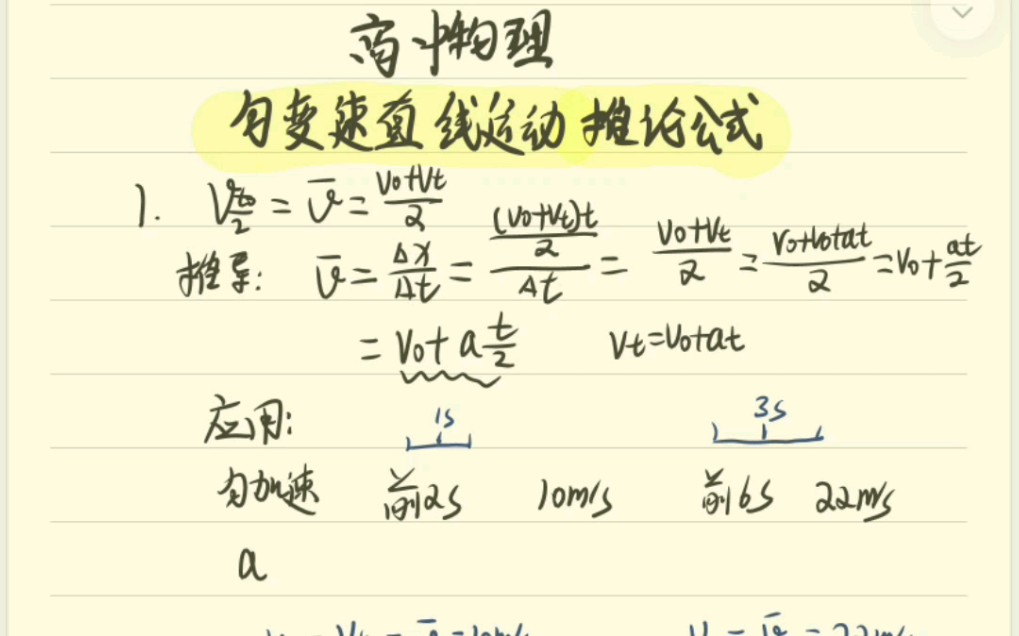 高中物理
匀变速直线运动推论公式
1. V_{t/2} = v̄ = (V₀+Vt)/2
推导: v̄ = Δx/Δt = ((V₀+Vt)t/2)/Δt = (V₀+Vt)/2 = (V₀+V₀+at)/2 = V₀+at/2
= V₀+a t/2 Vt=V₀+at
应用: 1s 3s
匀加速 前2s 10m/s 前6s 22m/s
a